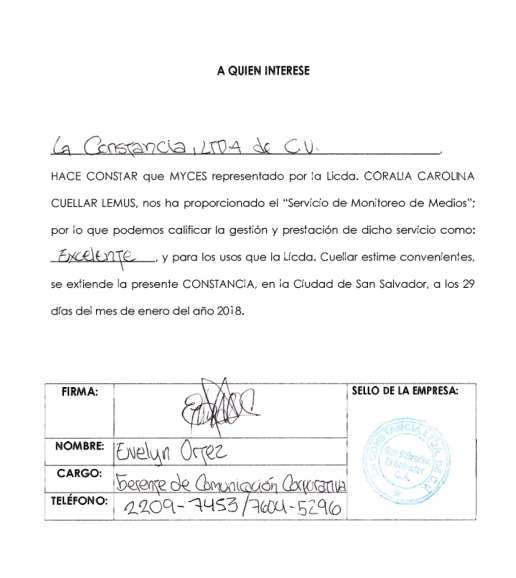 A QUIEN INTERESE
La Constancia, LTDA de C.V.
HACE CONSTAR que MYCES representado por la Licda. CORALIA CAROLINA
CUELLAR LEMUS, nos ha proporcionado el "Servicio de Monitoreo de Medios";
por lo que podemos calificar la gestión y prestación de dicho servicio como:
Excelente, y para los usos que la Licda. Cuellar estime convenientes,
se extiende la presente CONSTANCIA, en la Ciudad de San Salvador, a los 29
días del mes de enero del año 2018.
FIRMA:
SELLO DE LA EMPRESA:
LA CONSTANCIA LTDA. DE C.V.
San Salvador,
El Salvador
C.A.
NOMBRE: Evelyn Ortez
CARGO: Gerente de Comunicación Corporativa
TELÉFONO: 2209-7453/7604-5296